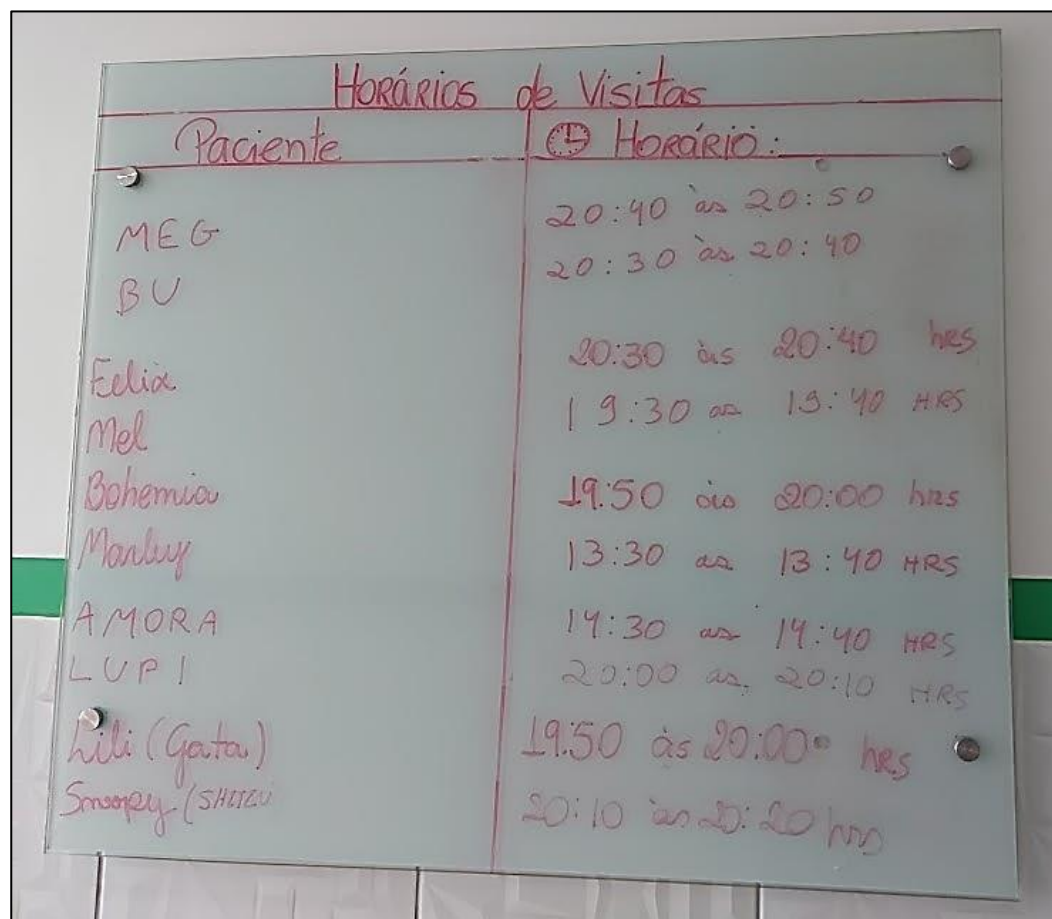 Horários de Visitas
Paciente Horário:
MEG 20:40 às 20:50
BU 20:30 às 20:40
Felix 20:30 às 20:40 hrs
Mel 19:30 as 19:40 HRS
Bohemia 19:50 às 20:00 hrs
Marley 13:30 as 13:40 HRS
AMORA 14:30 as 14:40 HRS
LUPI 20:00 as 20:10 HRS
Lili (Gata) 19:50 às 20:00 hrs
Snoopy 20:10 às 20:20 hrs